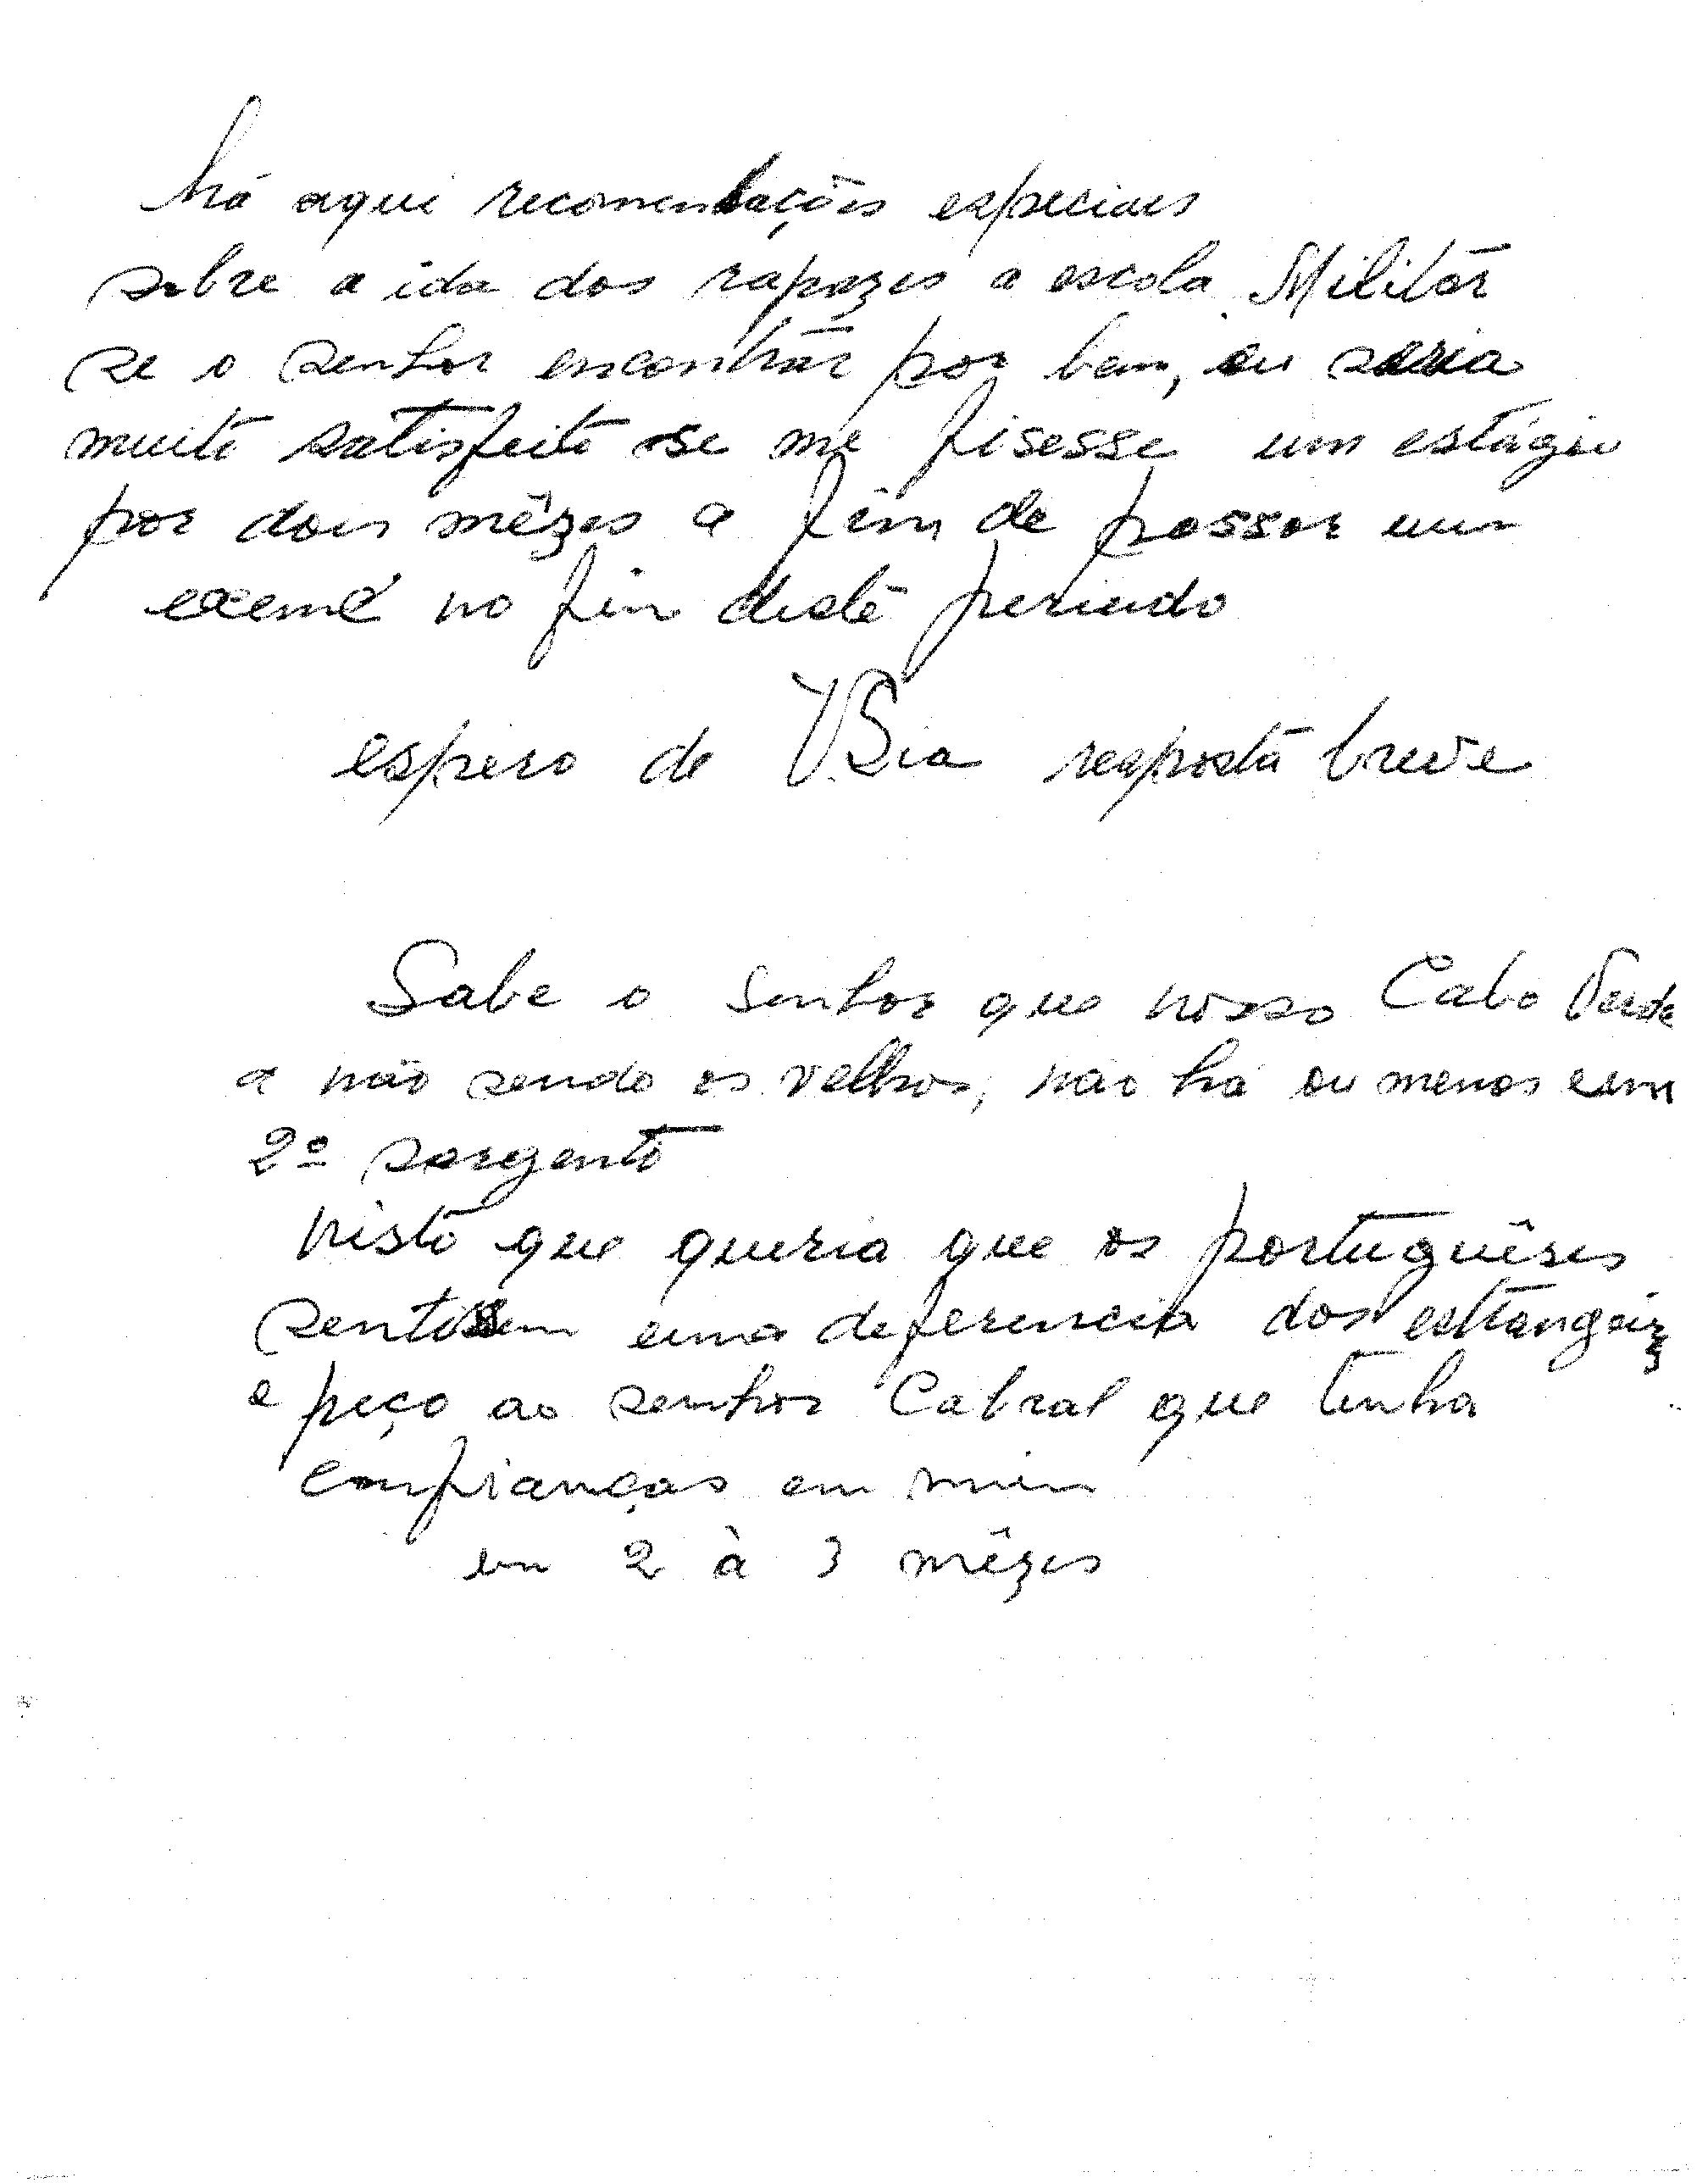 há aqui recomendações especiaes
sobre a ida dos rapazes a escola Militar
se o senhor encontrar por bem, eu seria
muito satisfeito se me fisesse um estágio
por dois mêzes a fim de passar um
exame no fim deste periudo
espero de V. Sia resposta breve
Sabe o senhor que nosso Cabo Verde
a não sendo os velhos, não há ou menos um
2º sargento
visto que queria que os portuguêses
sentissem uma deferencia dos estrangeiros
e peço ao senhor Cabral que tenha
confianças em mim
em 2 à 3 mêzes